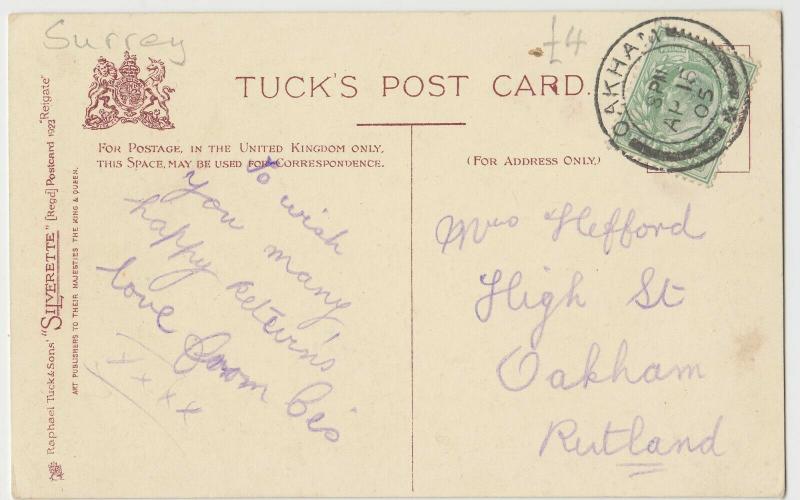 Surrey
£4
TUCK'S POST CARD.
OAKHAM
8PM
AP 15
05
FOR POSTAGE, IN THE UNITED KINGDOM ONLY,
THIS SPACE, MAY BE USED FOR CORRESPONDENCE.
(FOR ADDRESS ONLY.)
To wish
you many
happy returns
love from Cis
x x x x
Mrs Hefford
High St
Oakham
Rutland
Raphael Tuck & Sons' "SILVERETTE" [Regd] Postcard 1923 "Reigate"
ART PUBLISHERS TO THEIR MAJESTIES THE KING & QUEEN.